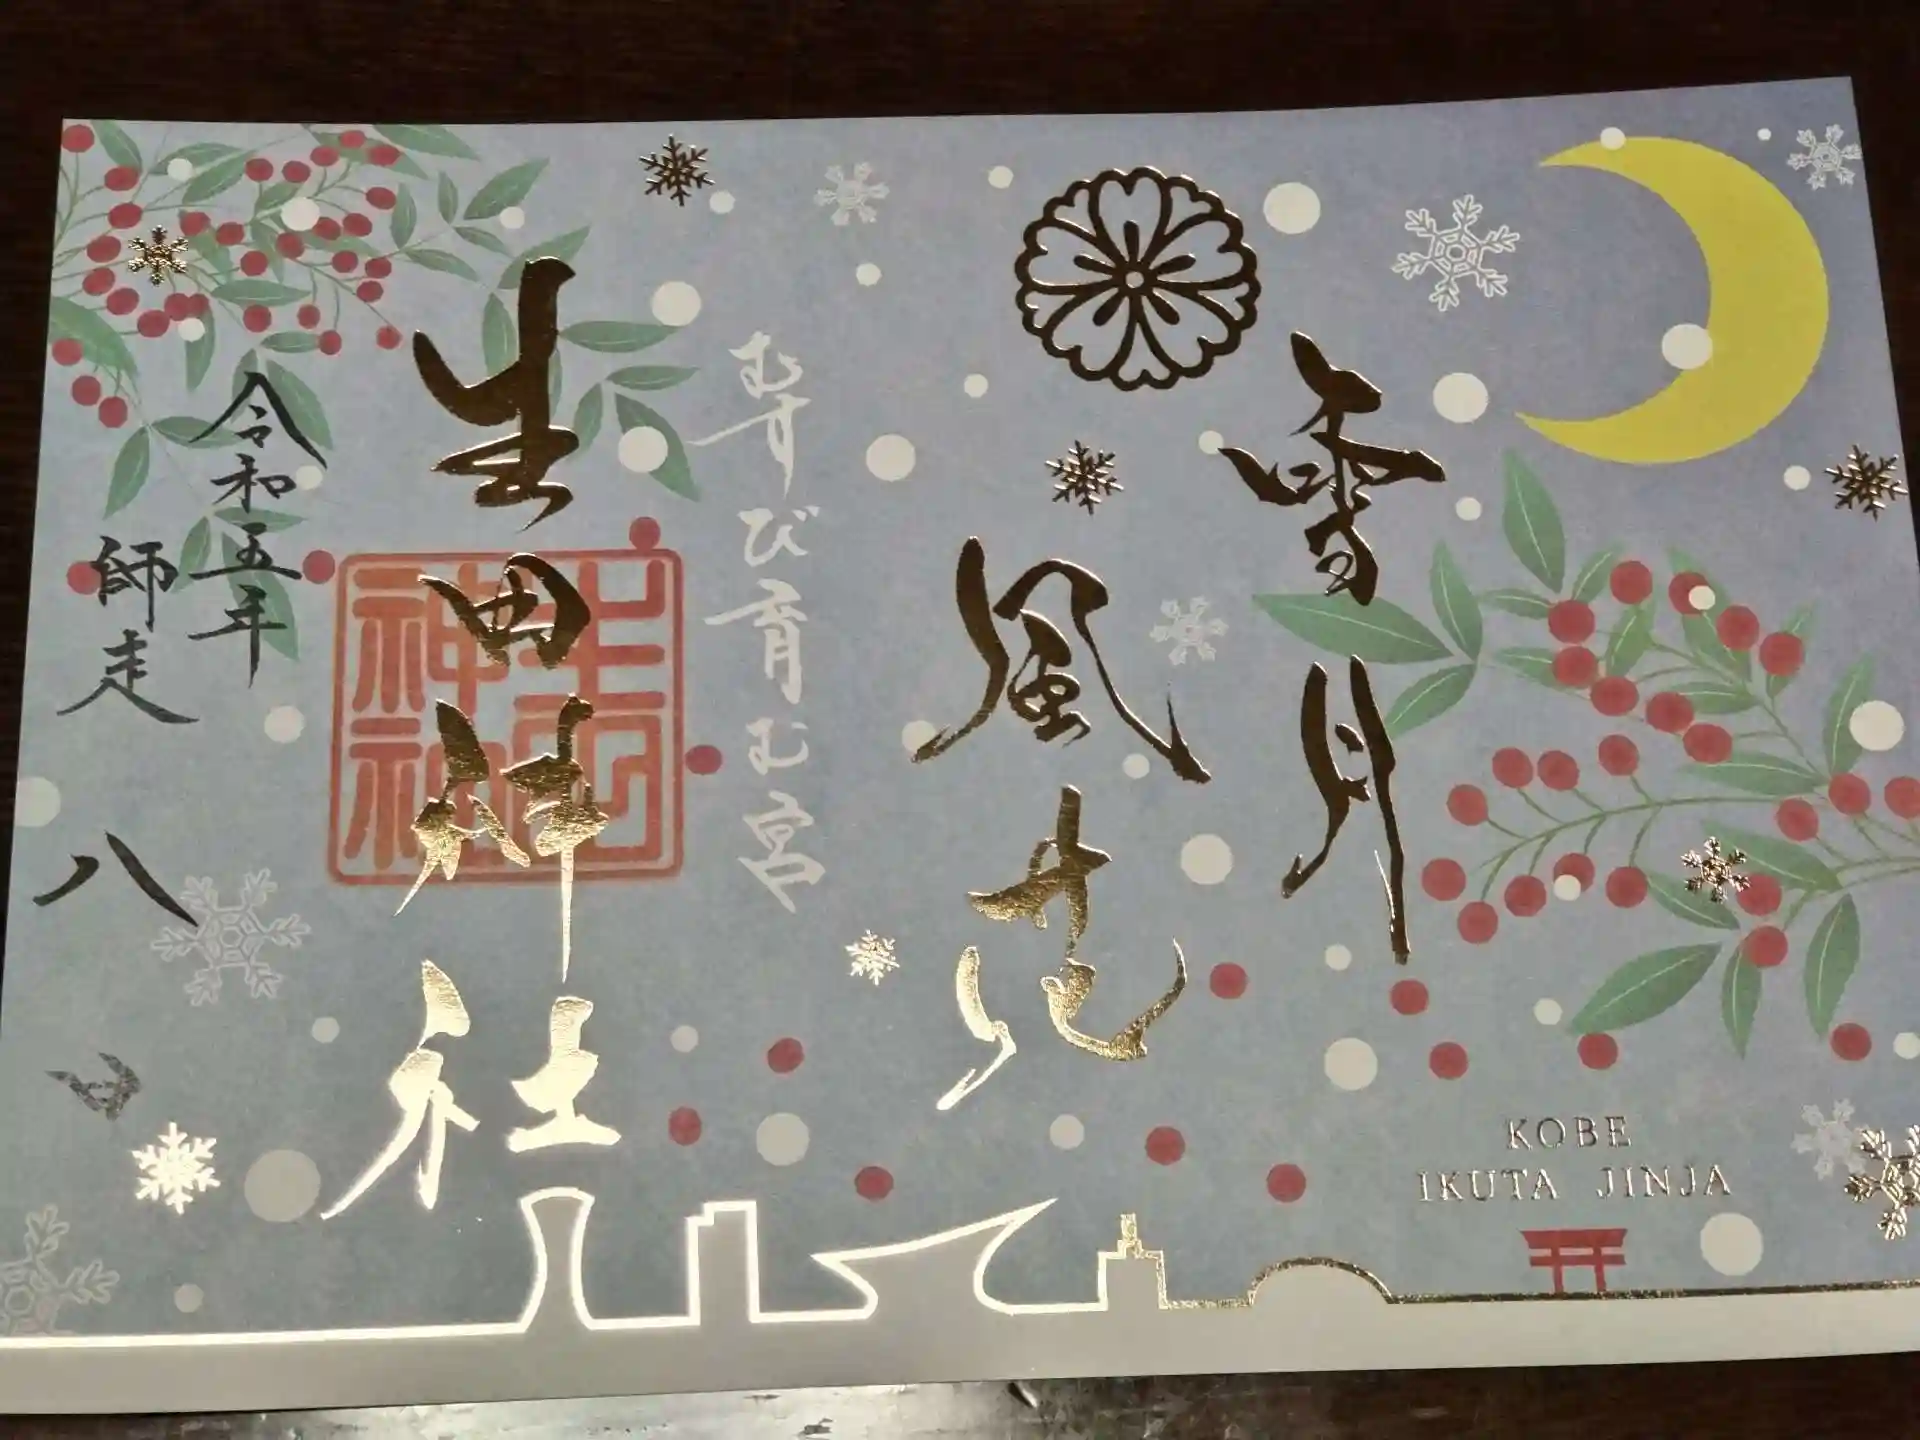 雪月
風花
むすび育む宮
生田神社
生田
神社
令和五年
師走八日
KOBE
IKUTA JINJA